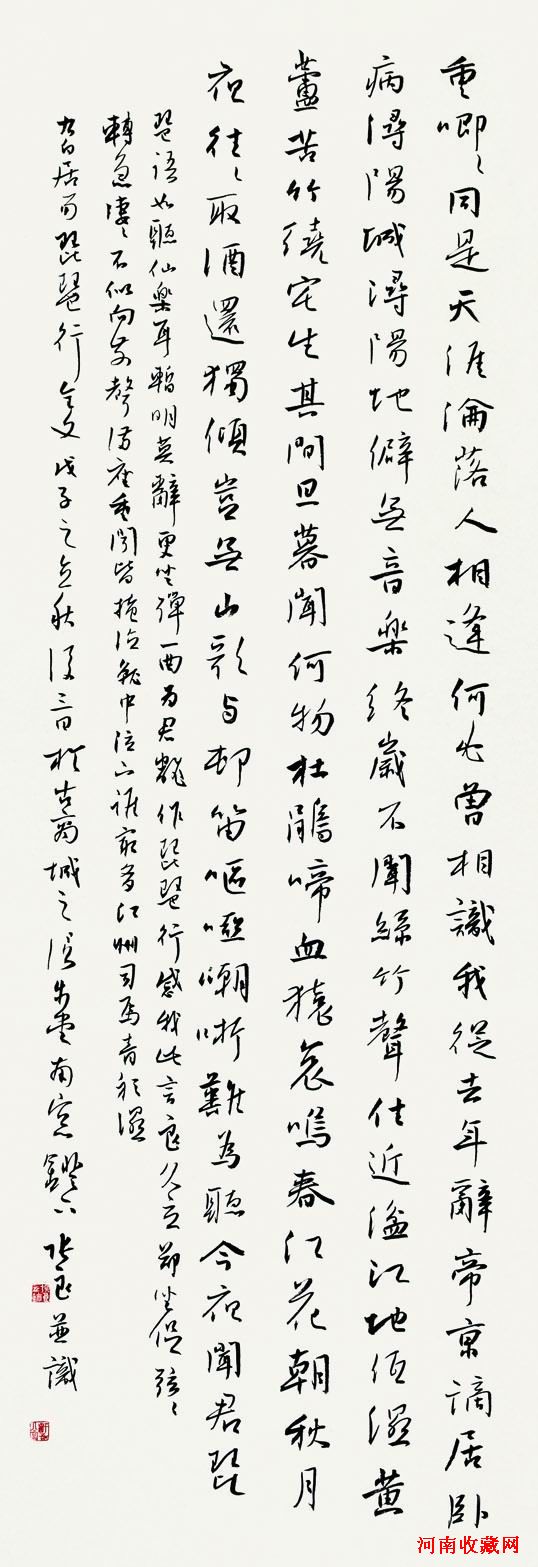 重唧〻同是天涯淪落人相逢何必曾相識我從去年辭帝京謫居卧
病潯陽城潯陽地僻無音樂終歲不聞絲竹聲住近湓江地低濕黄
蘆苦竹繞宅生其間旦暮聞何物杜鵑啼血猿哀鳴春江花朝秋月
夜往〻取酒還獨傾豈無山歌與邨笛嘔啞嘲哳難為聽今夜聞君琵
琶語如聽仙樂耳暫明莫辭更坐彈一曲為君翻作琵琶行感我此言良久立却坐促弦〻
轉急凄〻不似向前聲滿座重聞皆掩泣就中泣下誰最多江州司馬青衫濕
右白居易琵琶行全文戊子之立秋後三日於古城之南窓鐙下並識
河南收藏网